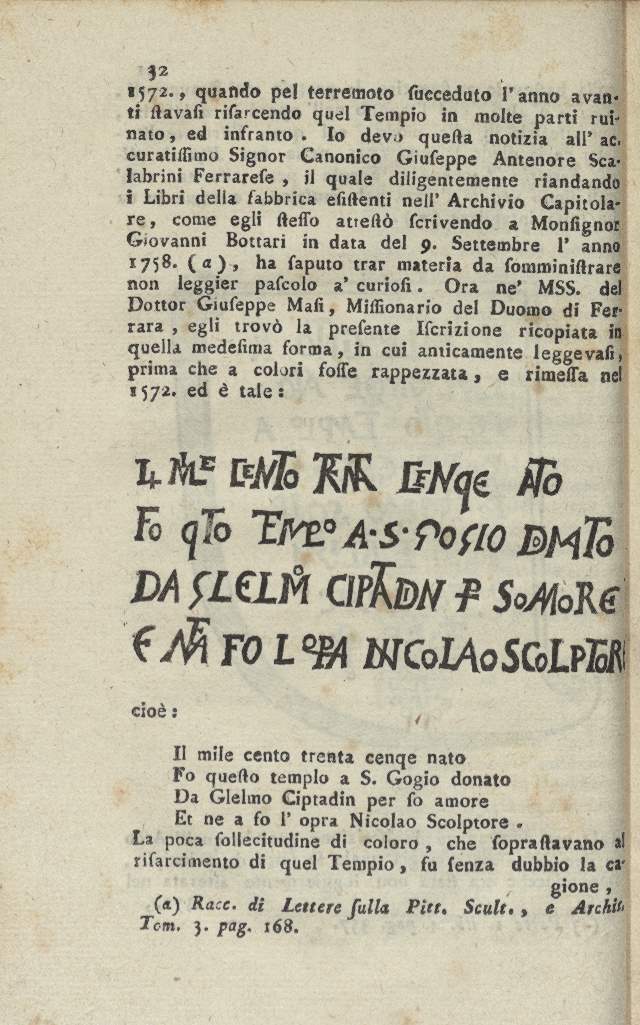 32
1572., quando pel terremoto ſucceduto l' anno avan-
ti ſtavaſi riſarcendo quel Tempio in molte parti rui-
nato, ed infranto. Io devo queſta notizia all' ac-
curatiſſimo Signor Canonico Giuſeppe Antenore Sca-
labrini Ferrareſe, il quale diligentemente riandando
i Libri della fabbrica eſiſtenti nell' Archivio Capitola-
re, come egli ſteſſo atteſtò ſcrivendo a Monſignor
Giovanni Bottari in data del 9. Settembre l' anno
1758. (a), ha ſaputo trar materia da ſomminiſtrare
non leggier paſcolo a' curioſi. Ora ne' MSS. del
Dottor Giuſeppe Maſi, Miſſionario del Duomo di Fer-
rara, egli trovò la preſente Iſcrizione ricopiata in
quella medeſima forma, in cui anticamente leggevaſi,
prima che a colori foſſe rappezzata, e rimeſſa nel
1572. ed è tale:
CENTO CENQE ATO
FO QTO A·S· DNATO
DA SOMORE
E FO L OPA NICOLAO SCOLPTOR
cioè:
Il mile cento trenta cenqe nato
Fo queſto templo a S. Gogio donato
Da Glelmo Ciptadin per ſo amore
Et ne a fo l' opra Nicolao Scolptore.
La poca ſollecitudine di coloro, che ſopraſtavano al
riſarcimento di quel Tempio, fu ſenza dubbio la ca-
gione,
(a) Racc. di Lettere ſulla Pitt. Scult., e Archit.
Tom. 3. pag. 168.